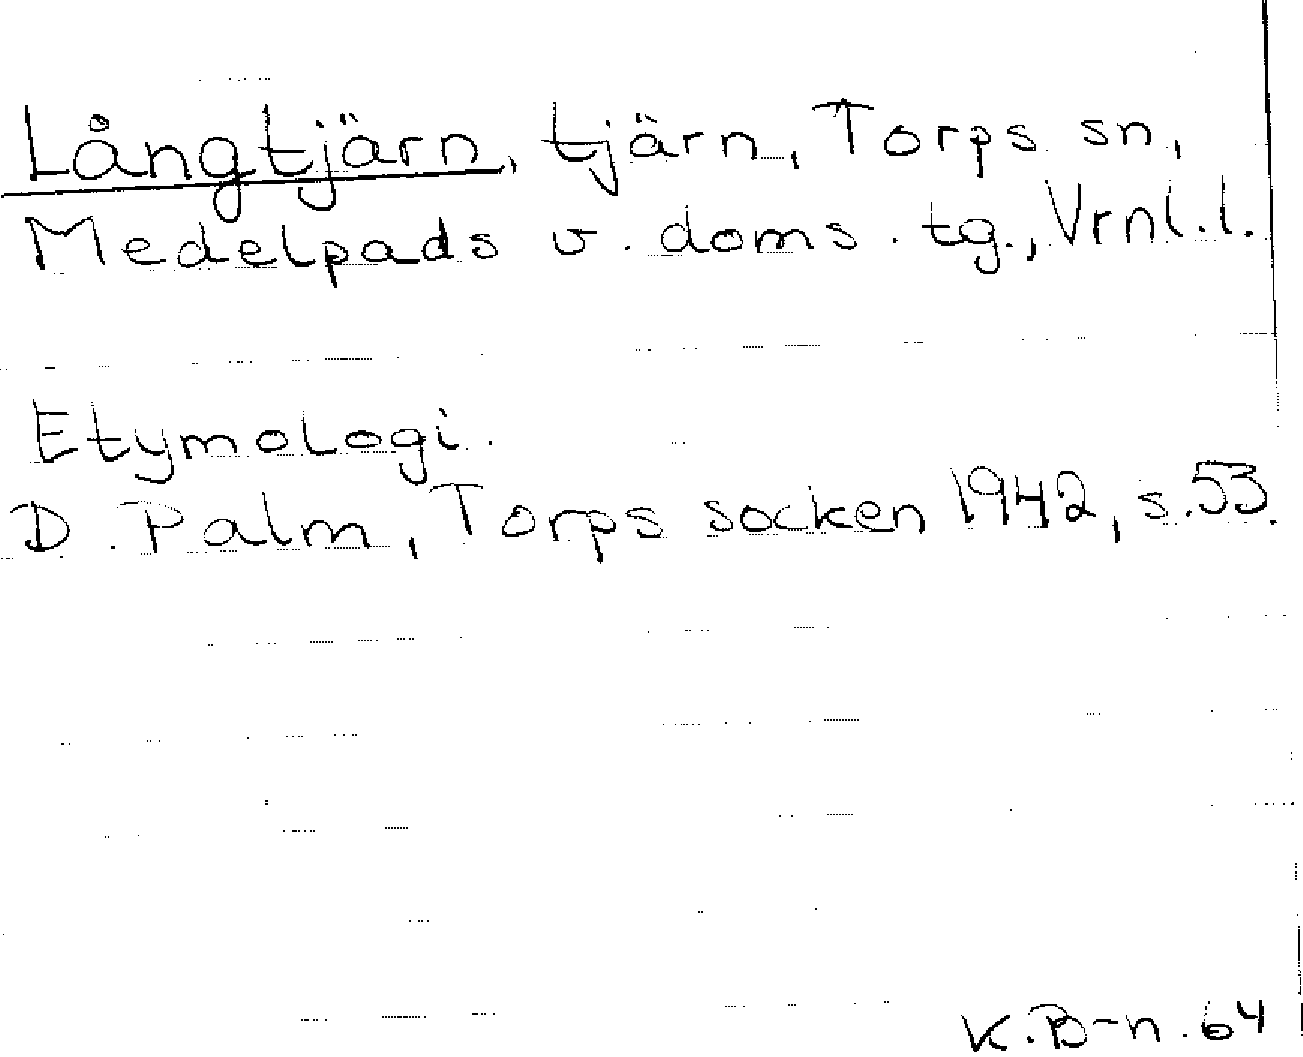 Långtjärn, tjärn, Torps sn,
Medelpads v. doms. tg., Vrnl.l.
Etymologi.
D. Palm, Torps socken 1942, s.53.
K.B-n.64